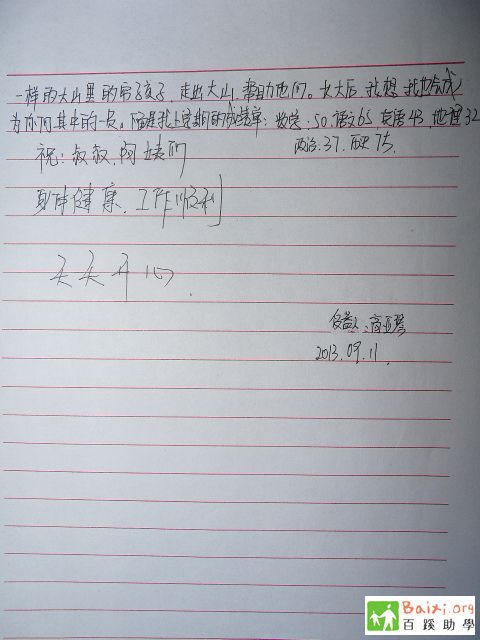 一样的大山里的穷孩子,走出大山,帮助他们。长大后,我想,我也会成
为你们其中的一员。随是我上学期的成绩单:数学:50.语:65 英语43.地理32
政治:37.历史75.
祝:叔叔,阿姨们
身体健康,工作顺利
天天开心.
受益人:高亚琴
2013.09.11.
Baixi.org
百蹊助學